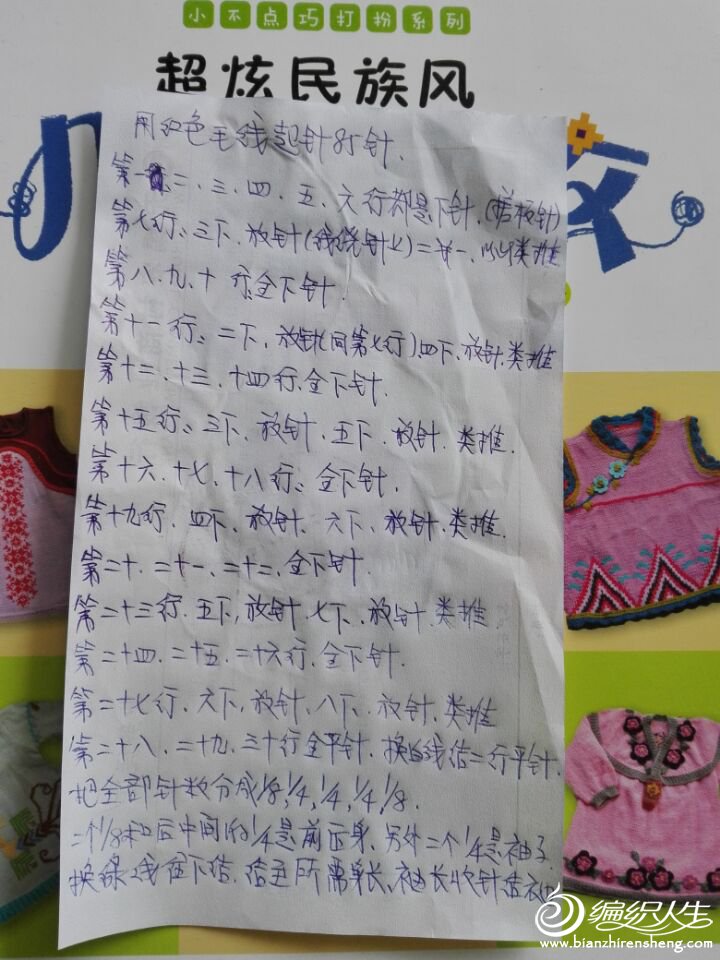 小不点巧打扮系列
超炫民族风
用红色毛线起针85针.
第一、二、三、四、五、六行都是下针,(搓板针)
第七行:三下、放针(线绕针上)=并一、以此类推
第八、九、十行:全下针.
第十一行:二下、放针(同第七行)四下、放针.类推
第十二、十三、十四行.全下针.
第十五行:三下、放针、五下、放针.类推.
第十六、十七、十八行:全下针.
第十九行、四下、放针、六下、放针.类推.
第二十、二十一、二十二、全下针.
第二十三行.五下,放针.七下、放针.类推
第二十四、二十五、二十六行.全下针.
第二十七行、六下,放针,八下、放针、类推
第二十八、二十九、三十行全平针.换白线结二行平针.
把全部针数分成1/8,1/4,1/4,1/4,1/8.
二个1/8和后中间的1/4是前后身、另外二个1/4是袖子
换绿线往下结.结至所需身长、袖长收针结衣
编织人生
www.bianzhirensheng.com